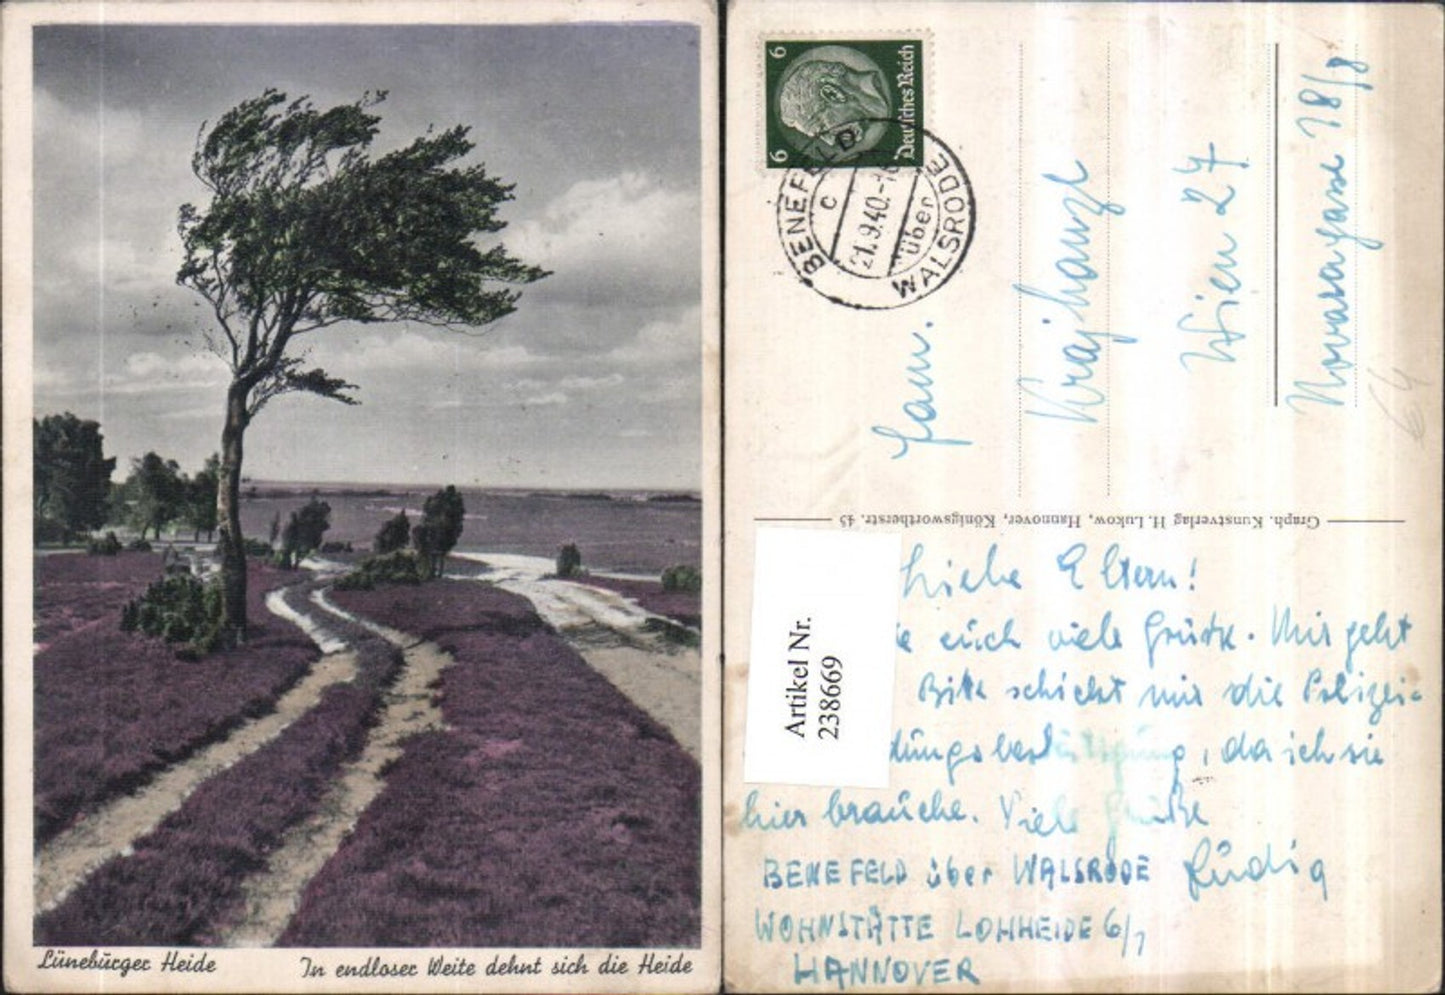 Lüneburger Heide
In endloser Weite dehnt sich die Heide
6
6
Deutsches Reich
BENEFELD
c
21.9.40.
über
WALSRODE
Fam.
Krajhanzl
Wien 27
18/8
64
Graph. Kunstverlag H. Lukow, Hannover, Königswortherstr. 45
Artikel Nr.
238669
Liebe Eltern!
euch viele Grüße. Mir geht
Bitte schickt mir die Polizei-
dungsbestätigung, da ich sie
hier brauche. Viele Grüße
BENEFELD über WALSRODE
WOHNSTÄTTE LOHHEIDE 6/7
HANNOVER